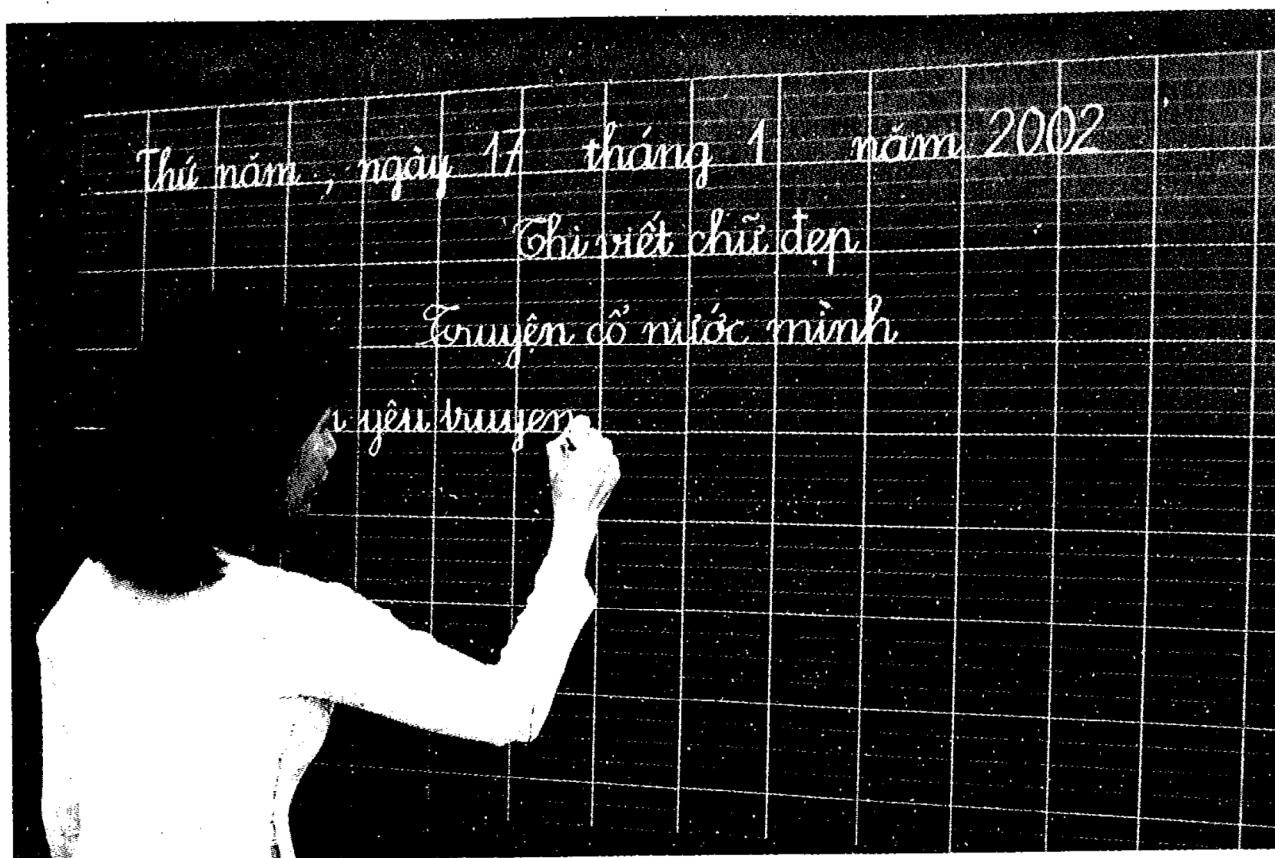 Thứ năm, ngày 17 tháng 1 năm 2002
Thi viết chữ đẹp
Truyện cổ nước mình
yêu truyen